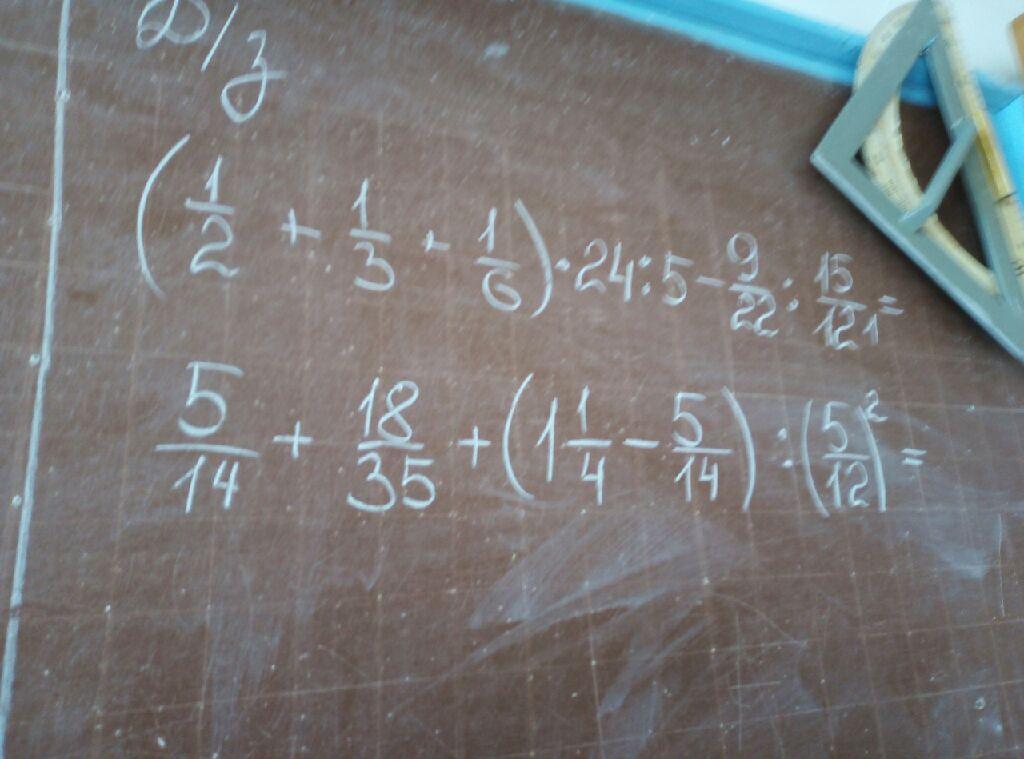 Д/з
(1/2 + 1/3 + 1/6) · 24 : 5 - 9/22 : 15/121 =
5/14 + 18/35 + (1 1/4 - 5/14) : (5/12)² =